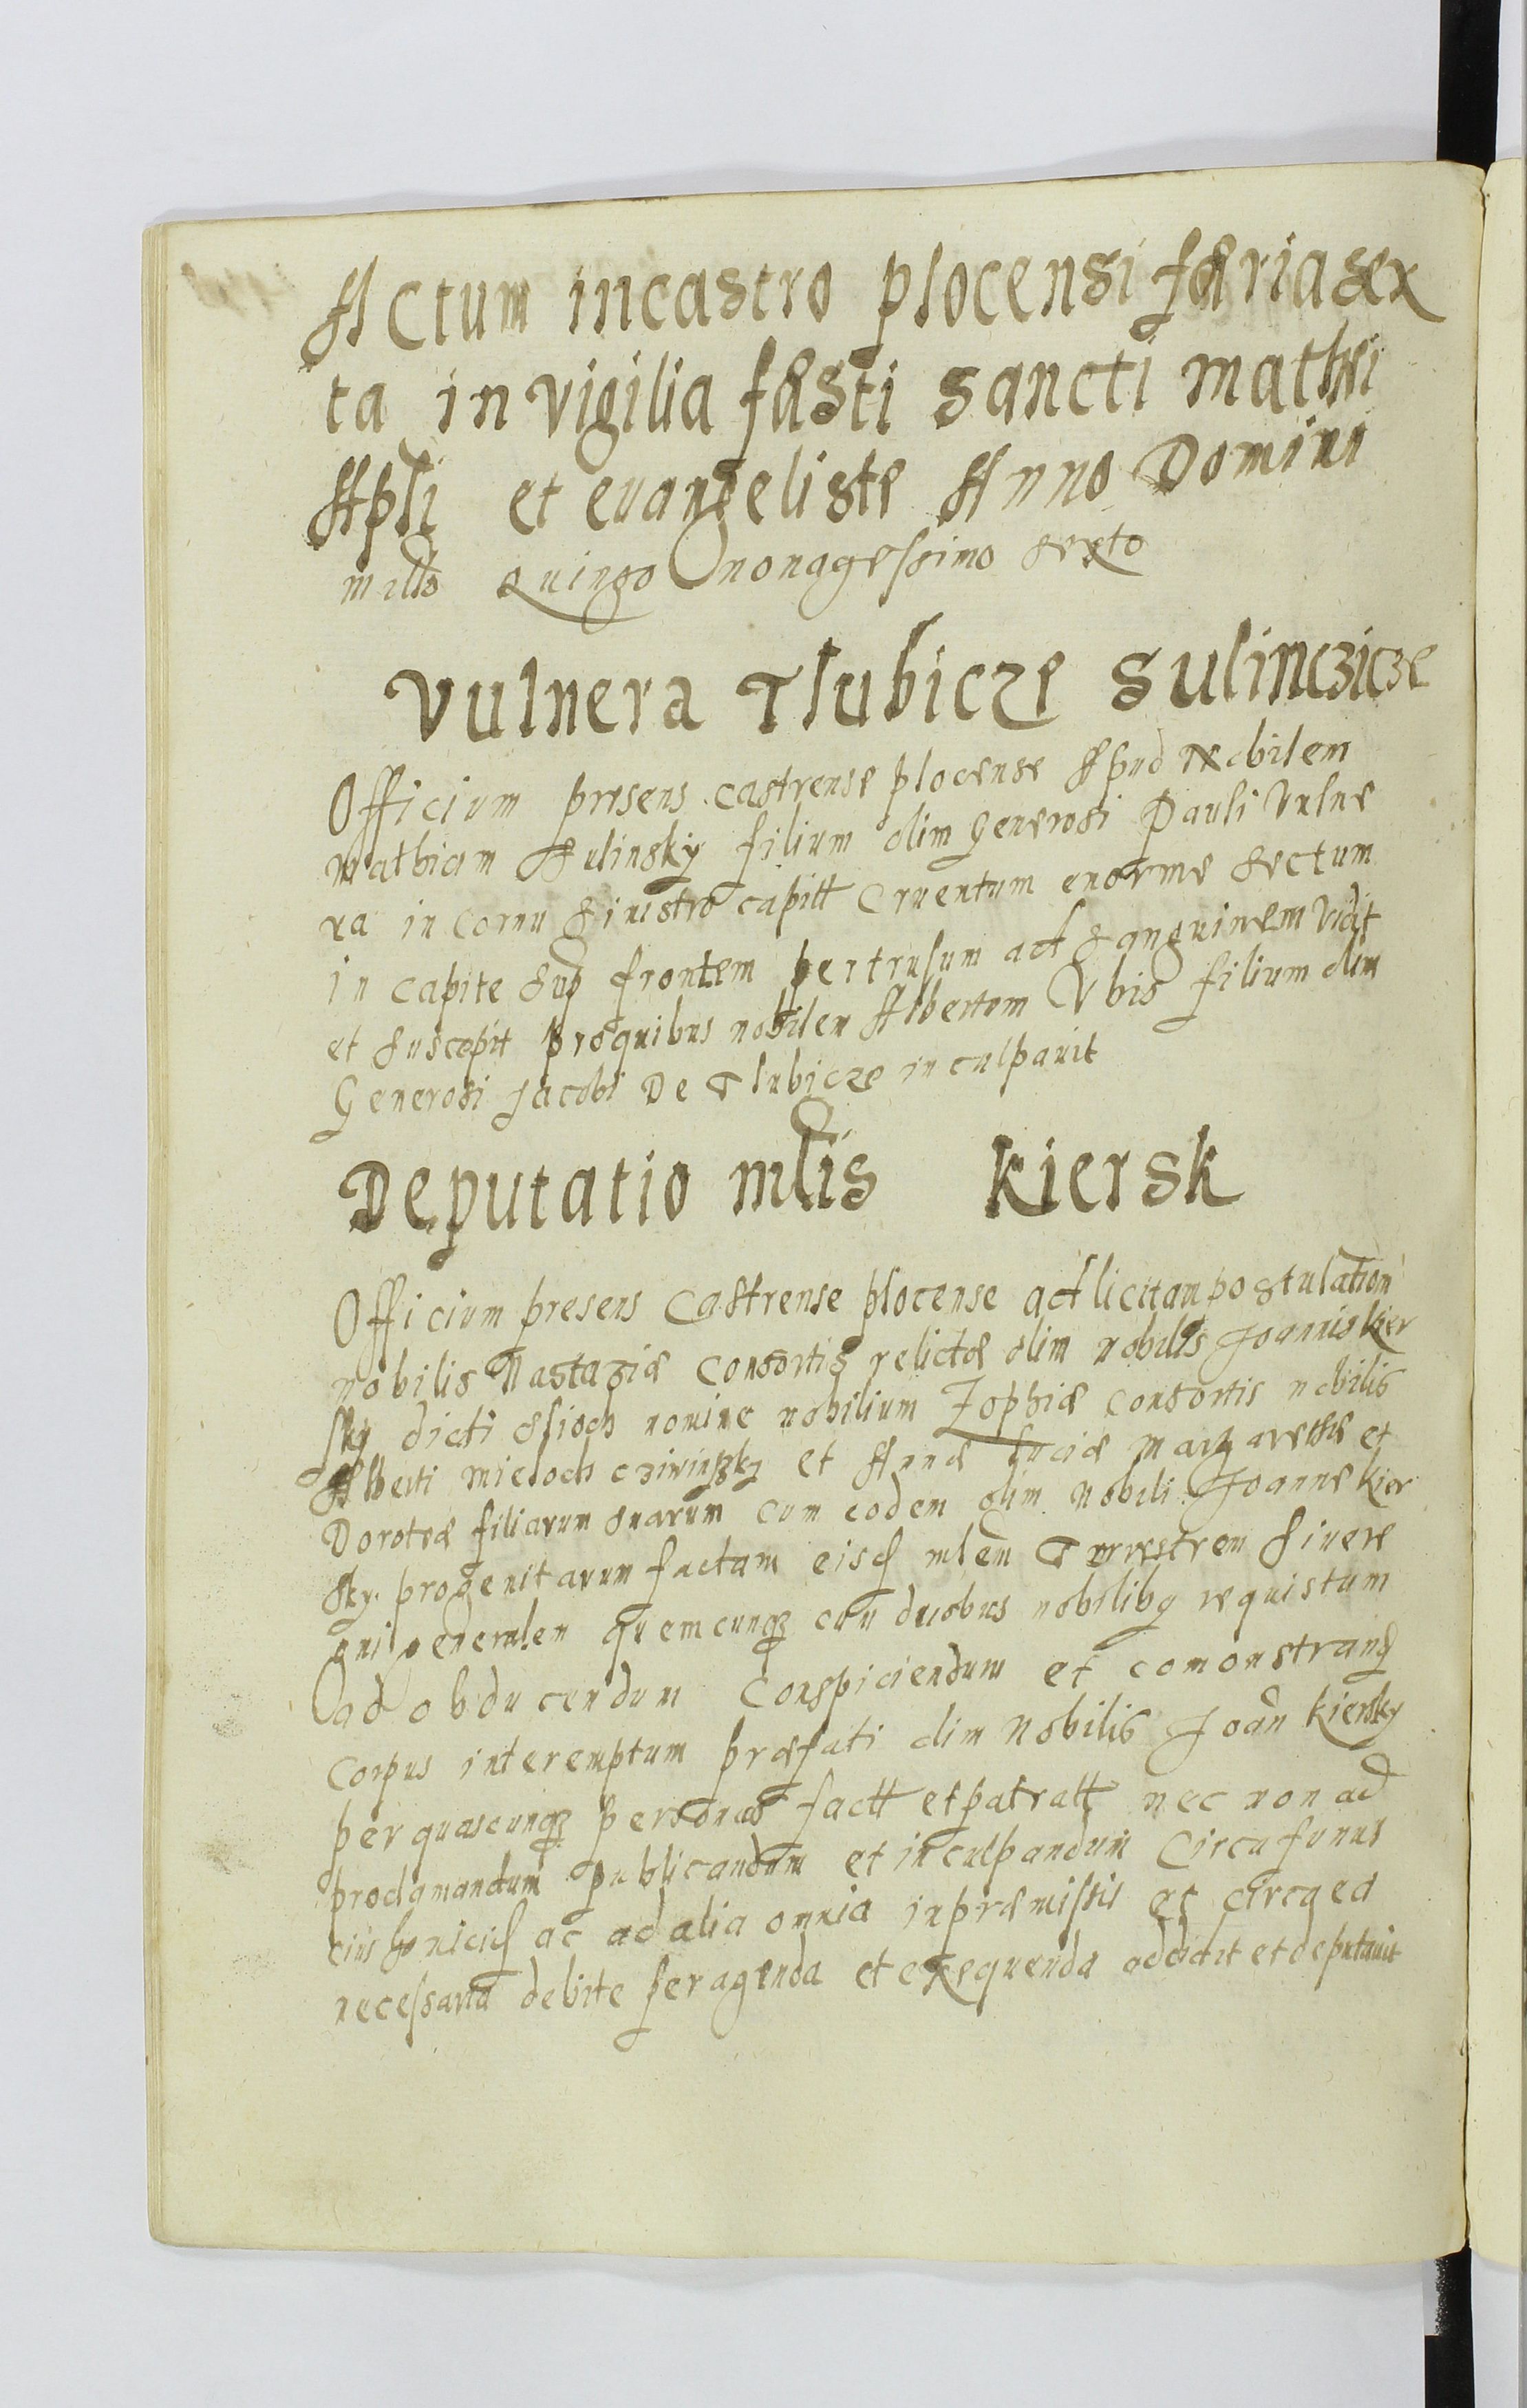 Actum in castro plocensi færia sex
ta in vigilia fæsti sancti mathei
Apli et evangeliste Anno Domini
millo quingo nonagessimo sexto
Vulnera Tlubicze Sulinczicze
Officium presens castrense plocense Apud Nobilem
Mathiam Sulinsky filium olim Generosi Pauli Vulne
ra in cornu sinistro capitt cruentum enorme sectum
in capite sup frontem pertrusum ad sanguinem vidit
et suscepit pro quibus nobilem Albertum Vbis filium olim
Generosi Jacobi De Tlubicze inculpavit
Deputatio mlis Kiersk
Officium presens Castrense plocense ad licitam postulation
nobilis Nastaziæ consortis relictæ olim nobilis Joannis Kier
sky dicti nomine nobilium Zophiæ consortis nobilis
Alberti miedoch et Annæ Luciæ Margarethæ et
Doroteæ filiarum suarum cum eodem olim nobili Joanne Kier
sky progenitarum factam eisd mlem Terrestrem sive re
gni generalem quemcunq cum duobus nobilibq requistum
ad obducendum conspiciendum et comonstrand
corpus interemptum præfati olim Nobilis Joan Kiersky
per quascunq personas factt et patratt nec non ad
proclamandum publicandum et inculpandum circa funus
eius ac ad alia omnia in præmissis et circa ea
necessaria debite peragenda et exequenda addidit et deputavit